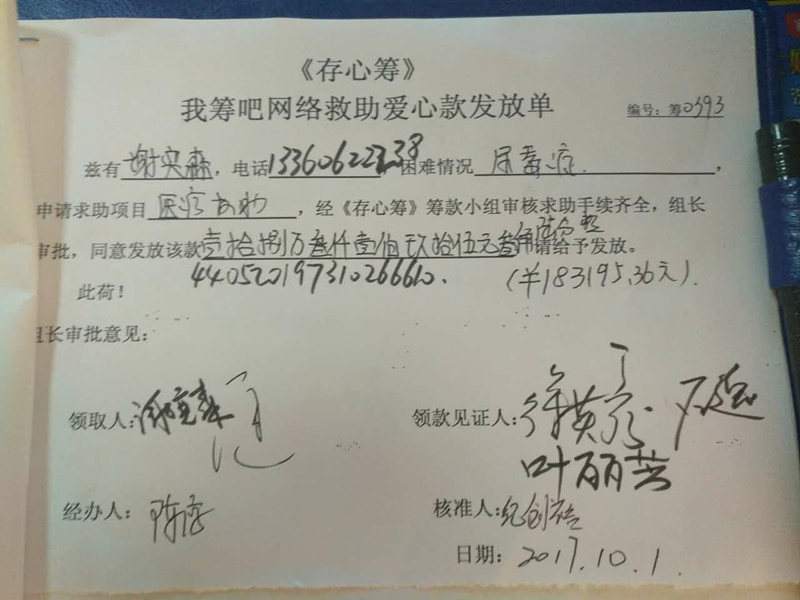 《存心筹》
我筹吧网络救助爱心款发放单
编号：筹0393
兹有谢实森，电话13360622238困难情况 尿毒症，
申请求助项目 医疗救助，经《存心筹》筹款小组审核求助手续齐全，组长
审批，同意发放该款壹拾捌万叁仟壹佰玖拾伍元叁角陆分整请给予发放。
440520197310266610. (￥183195.36元).
此荷！
组长审批意见：
领取人： 领款见证人：
叶丽芸
经办人： 核准人：
日期：2017.10.1.